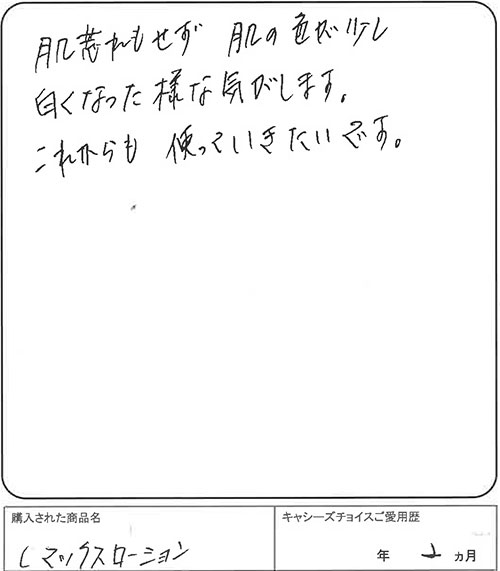 肌荒れもせず 肌の色が少し
白くなった様な気がします。
これからも 使っていきたいです。
購入された商品名
キャシーズチョイスご愛用歴
Cマックスローション
年 2 ヵ月